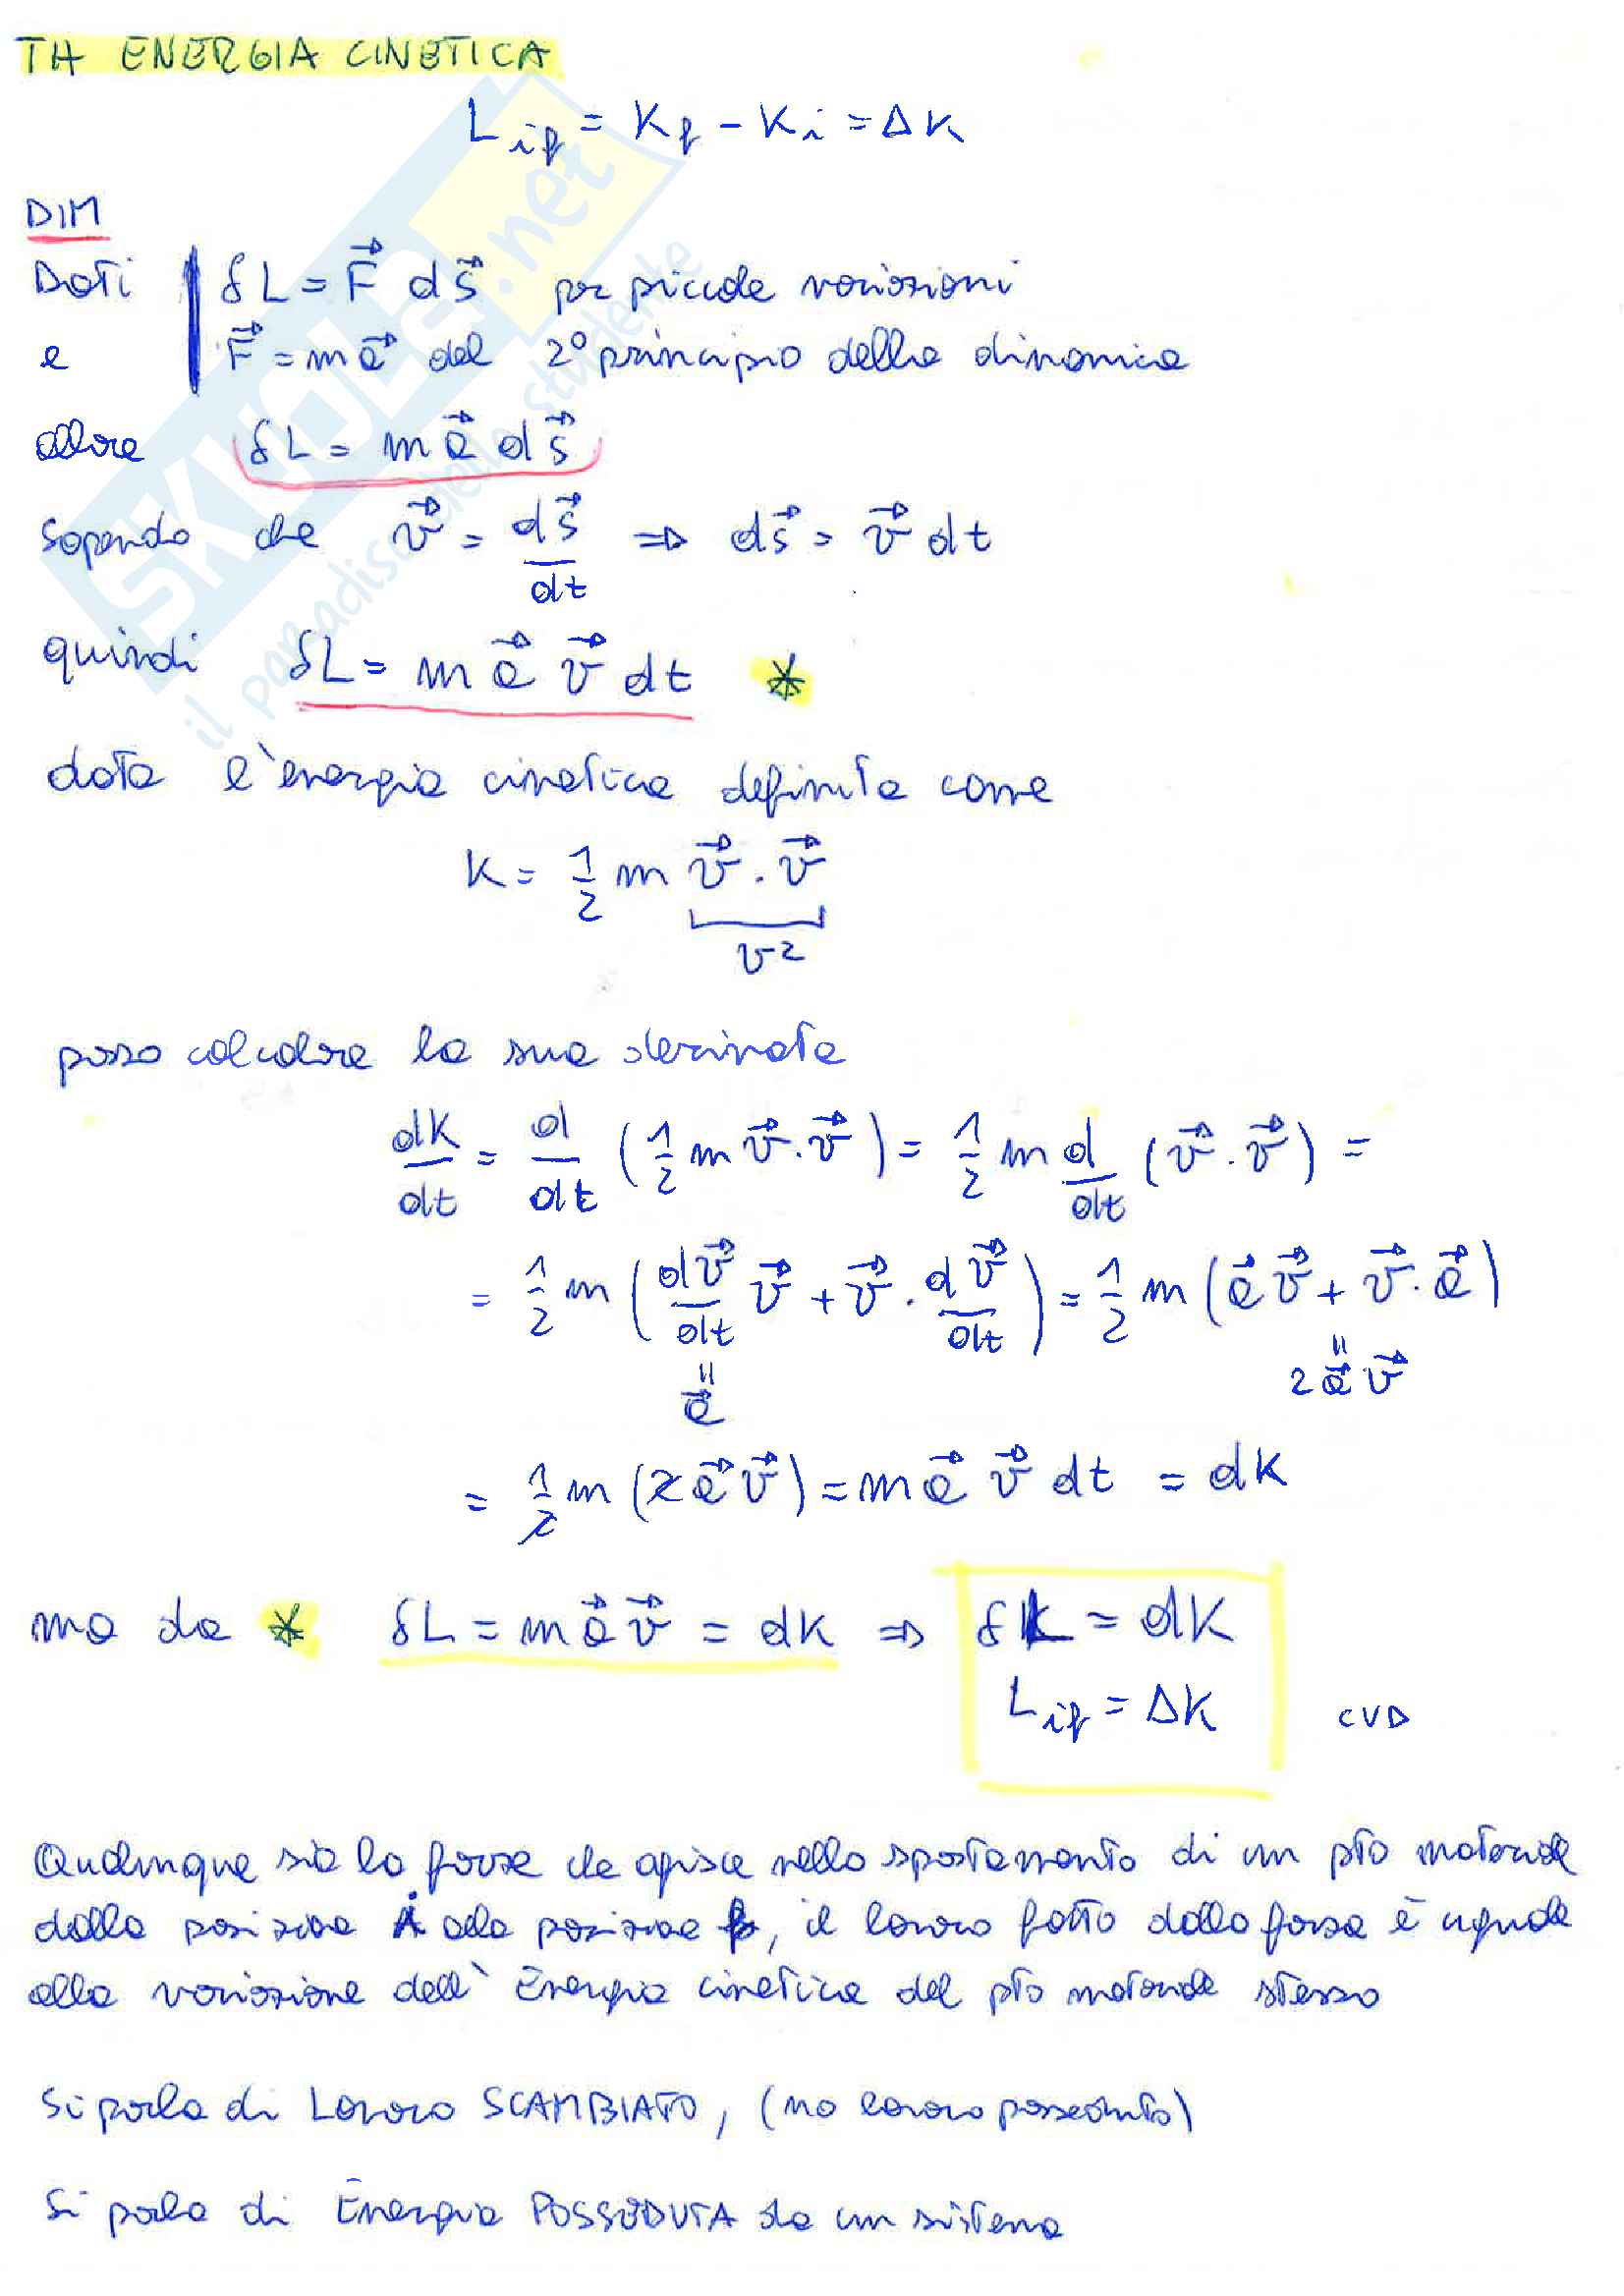 TH ENERGIA CINETICA
L_if = K_f - K_i = ΔK
DIM
Dati | δL = F⃗ ds⃗ per piccole variazioni
e | F⃗ = m a⃗ dal 2° principio della dinamica
allora δL = m a⃗ ds⃗
sapendo che v⃗ = ds⃗/dt ⇒ ds⃗ = v⃗ dt
quindi δL = m a⃗ v⃗ dt *
data l'energia cinetica definita come
K = 1/2 m v⃗ · v⃗
v²
posso calcolare la sua derivata
dK/dt = d/dt (1/2 m v⃗ · v⃗) = 1/2 m d/dt (v⃗ · v⃗) =
= 1/2 m (dv⃗/dt v⃗ + v⃗ · dv⃗/dt) = 1/2 m (a⃗ v⃗ + v⃗ · a⃗)
" a⃗ " 2 a⃗ v⃗
= 1/2 m (2 a⃗ v⃗) = m a⃗ v⃗ dt = dK
ma da * δL = m a⃗ v⃗ = dK ⇒ δL = dK
L_if = ΔK CVD
Qualunque sia la forza che agisce nello spostamento di un pto materiale
dalla posizione i alla posizione f, il lavoro fatto dalla forza è uguale
alla variazione dell' Energia cinetica del pto materiale stesso
Si parla di Lavoro SCAMBIATO, (no lavoro posseduto)
Si parla di Energia POSSEDUTA da un sistema
SKUOLA.net
il paradiso dello studente